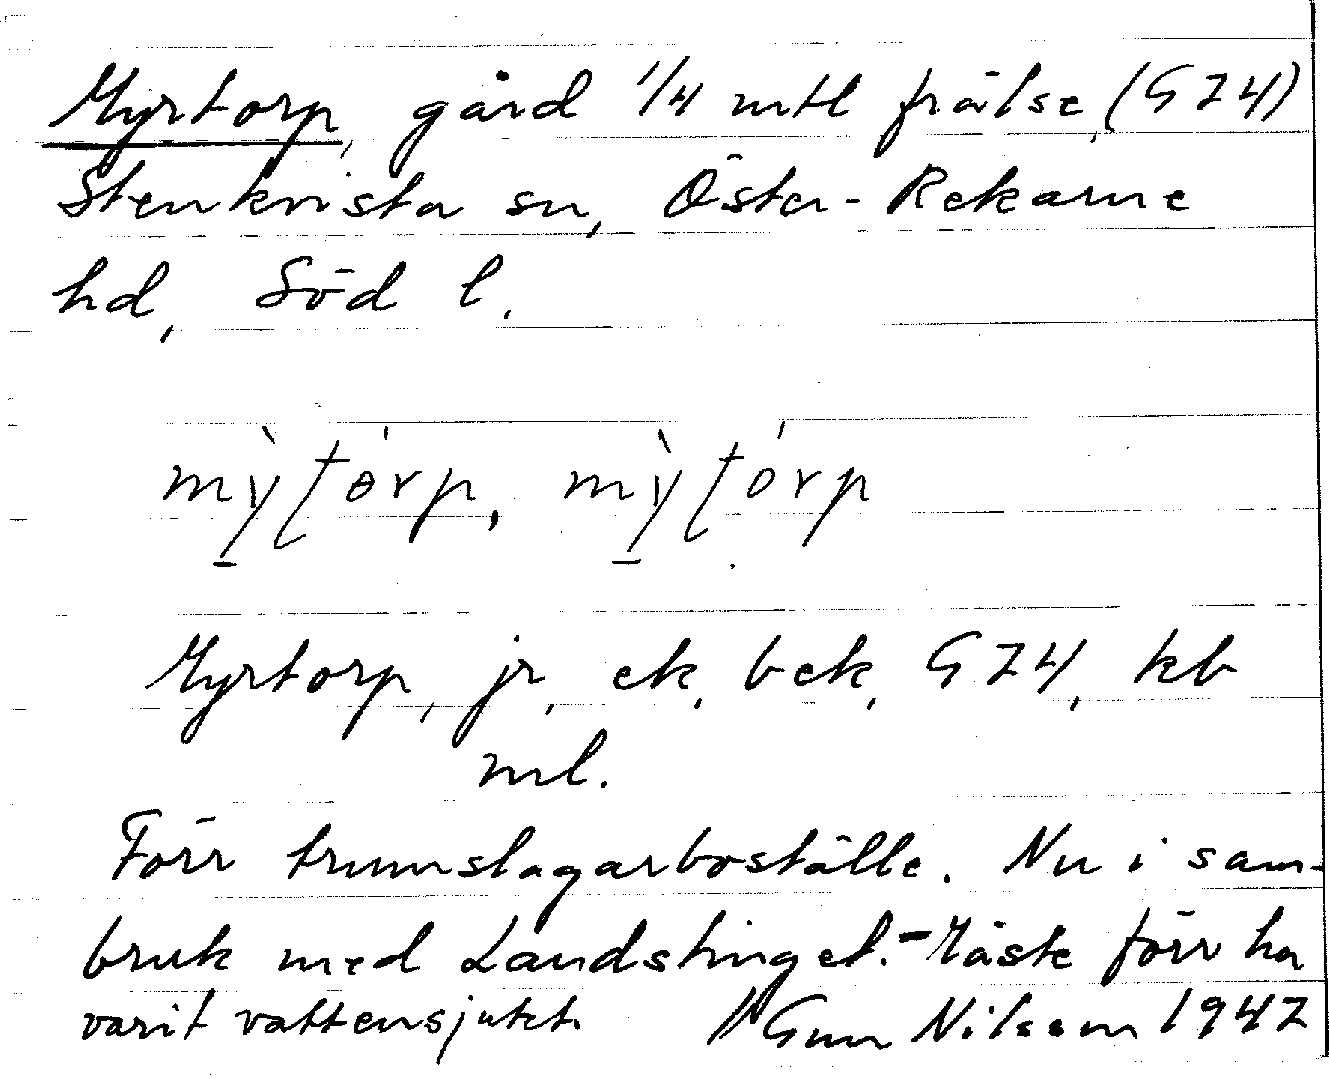 Myrtorp, gård 1/4 mtl frälse, (G74)
Stenkvista sn, Öster-Rekarne
hd, Söd l.
Myrtorp, jr, ek, bek, G74, kb
ml.
Förr trumslagarboställe. Nu i sam-
bruk med Landstinget. - Måste förr ha
varit vattensjukt. Gun Nilsson 1947